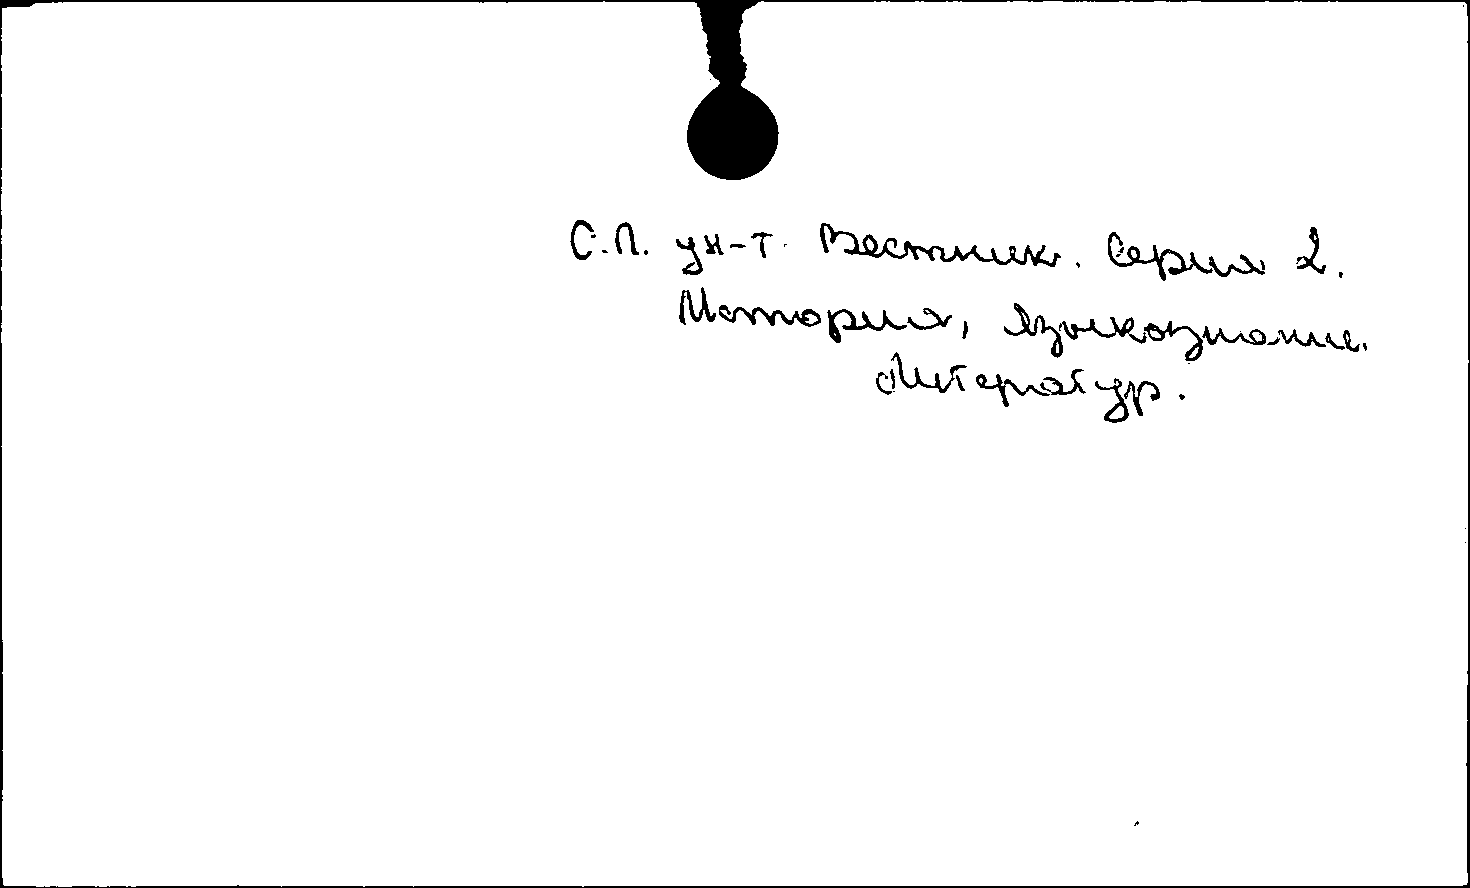 С.П. ун-т. Вестник. Серия 2.
История, языкознание.
Литератур.